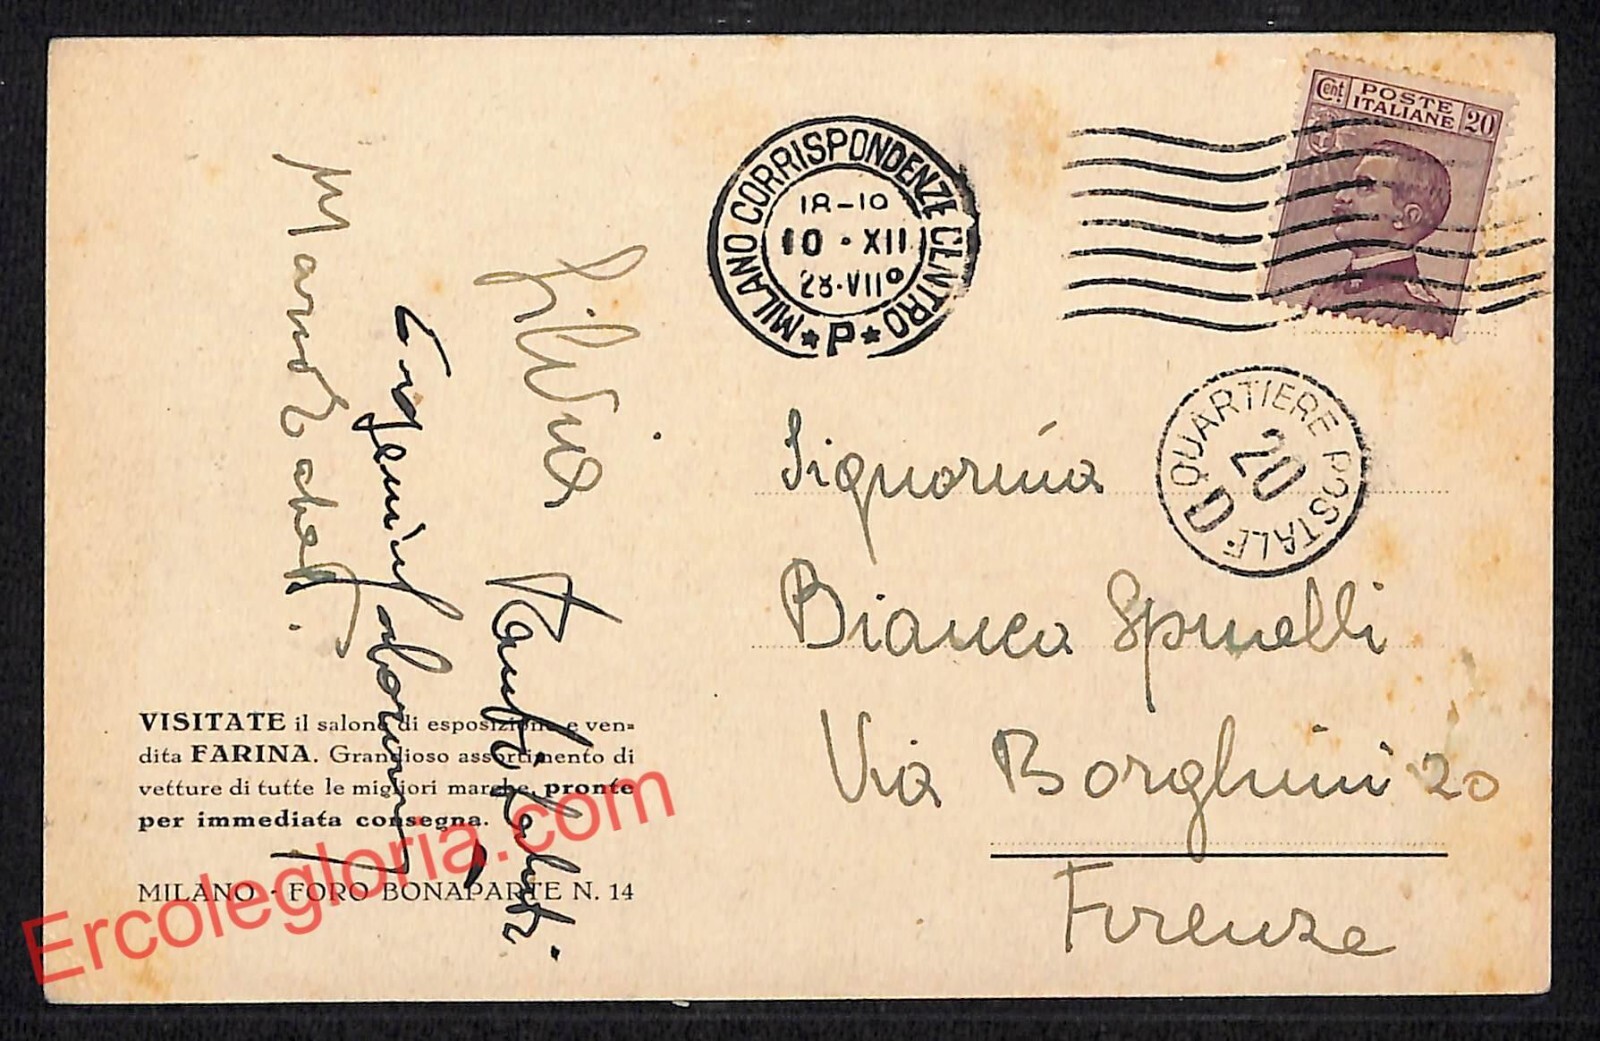 Cent.
POSTE
ITALIANE
20
MILANO CORRISPONDENZE CENTRO
10 · XII
28·VIIº
★ P ★
QUARTIERE POSTALE
20
D
Signorina
Bianca Spinelli
Via Borghini 20
Firenze
Silvio
VISITATE il salone di esposizione e ven=
dita FARINA. Grandioso assortimento di
vetture di tutte le migliori marche, pronte
per immediata consegna.
MILANO - FORO BONAPARTE N. 14
Ercolegloria.com